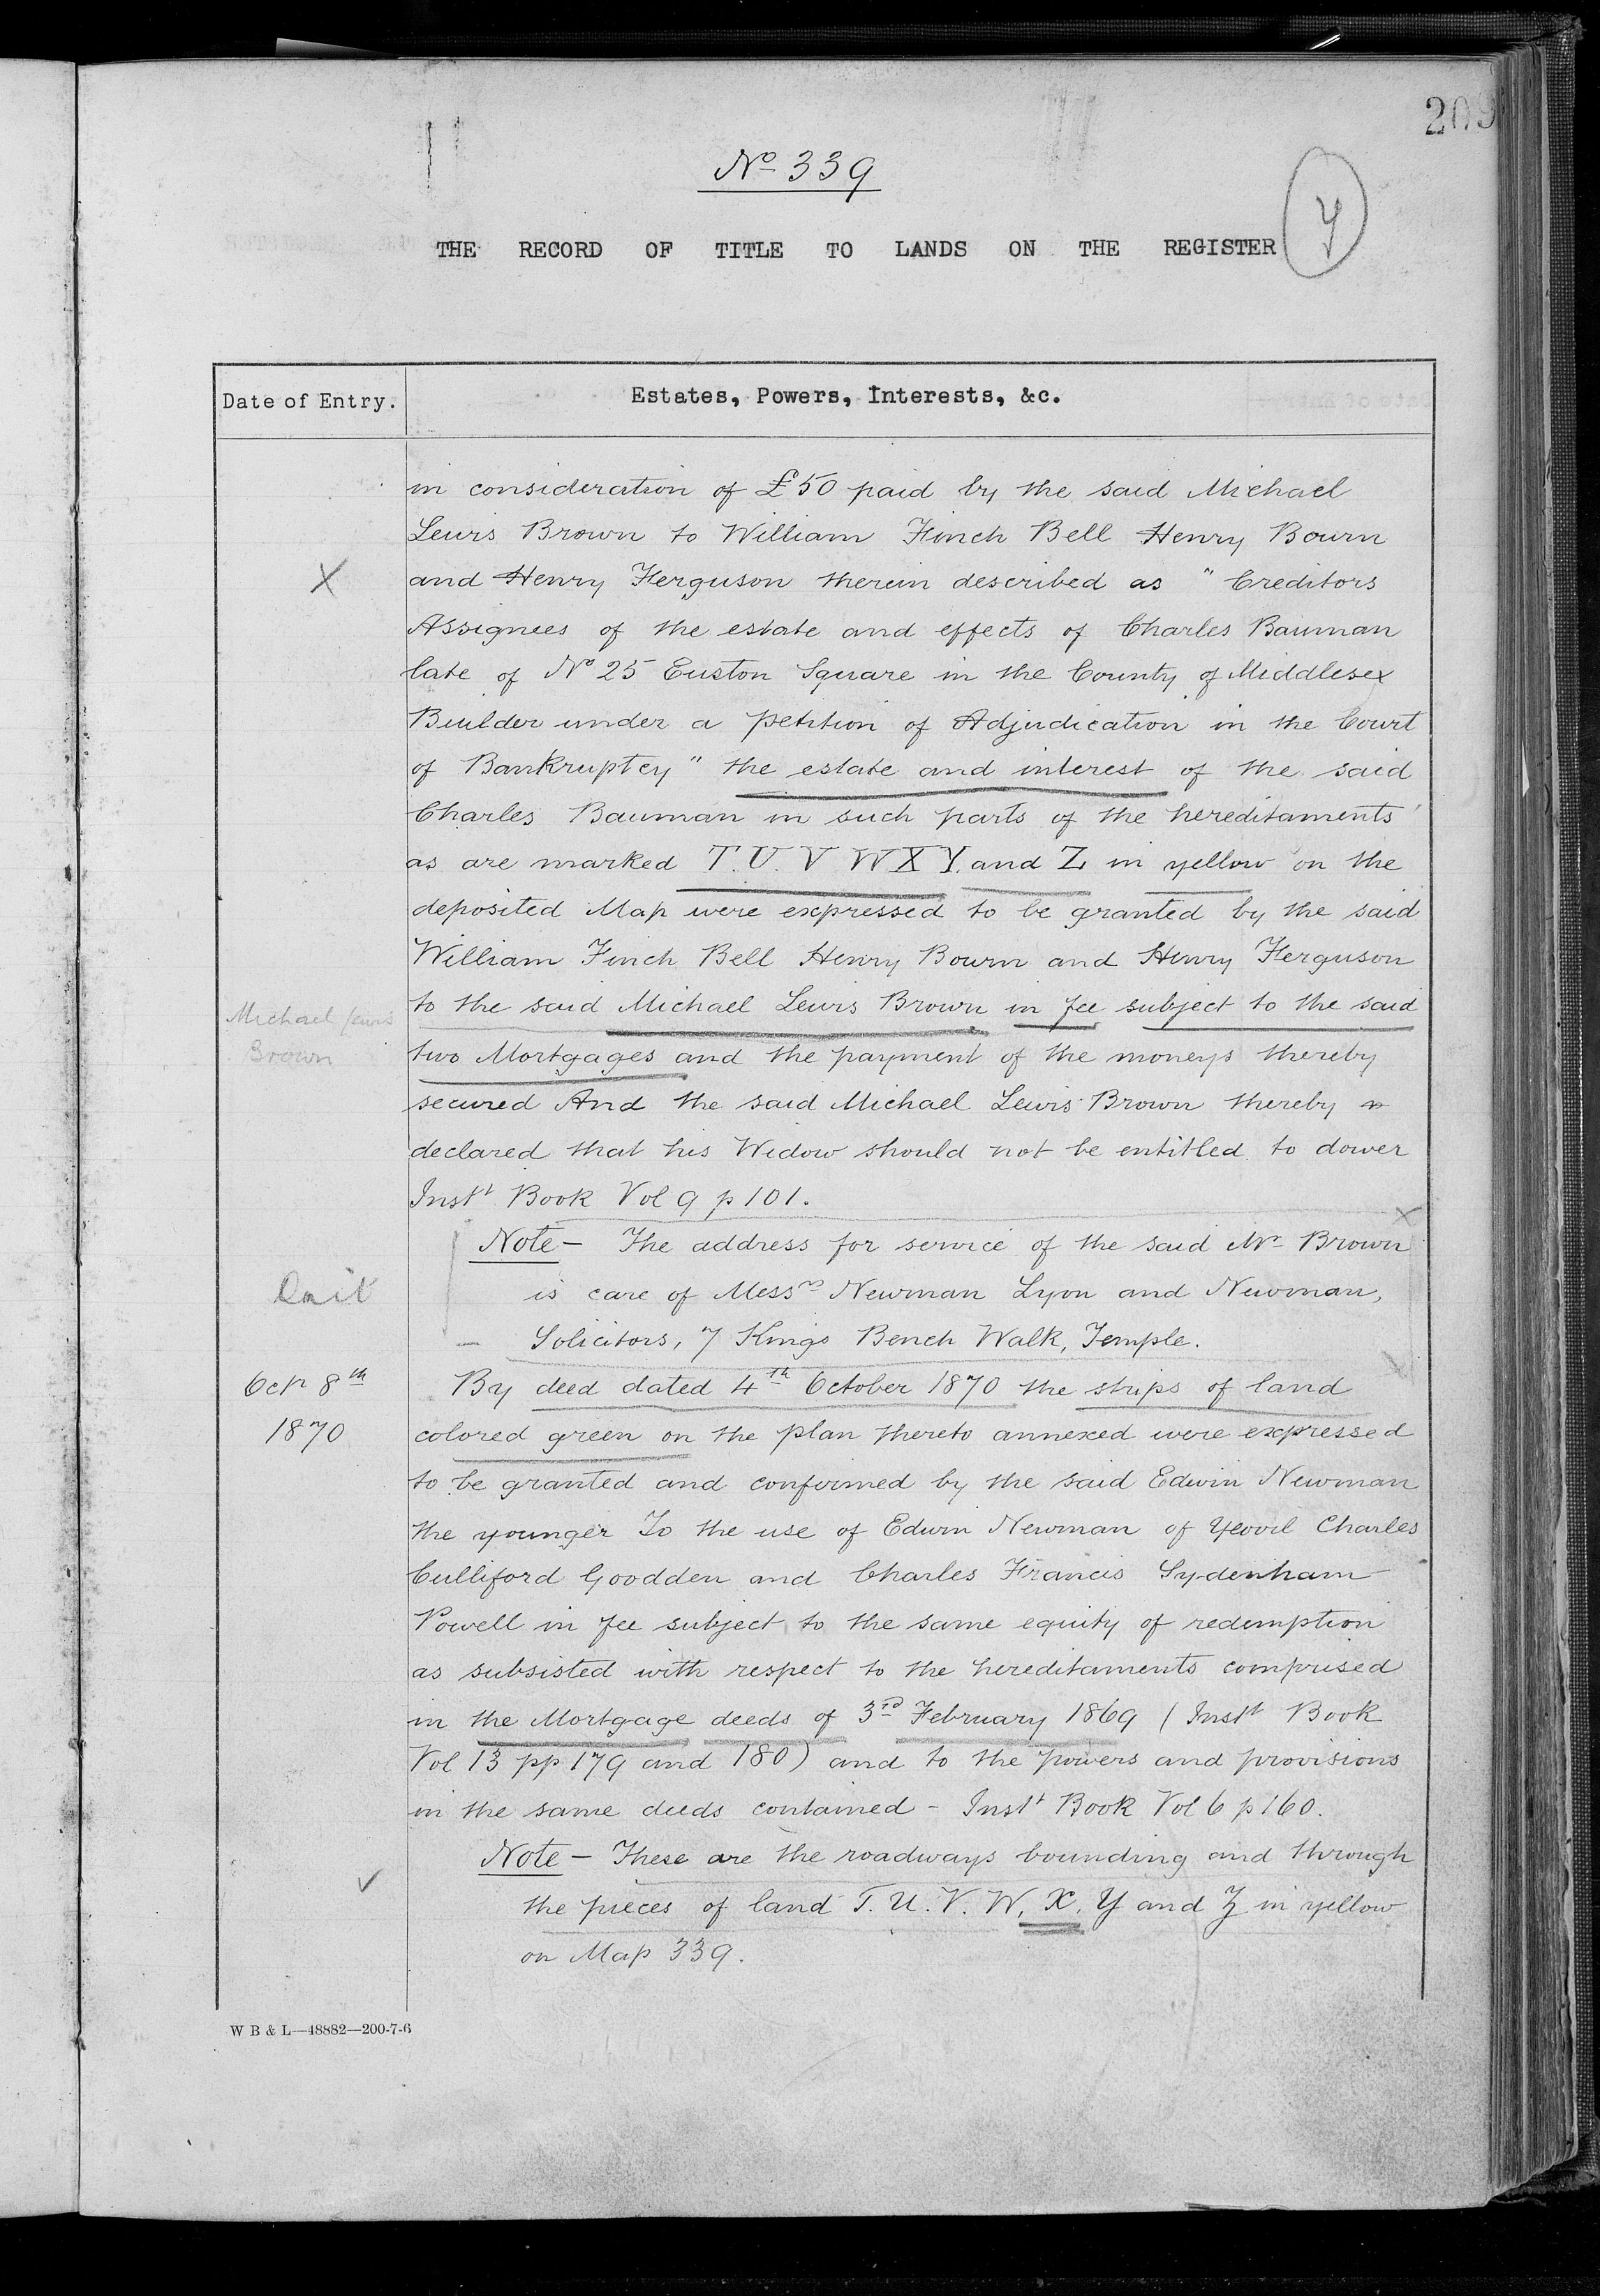 209
Nº 339
y
THE RECORD OF TITLE TO LANDS ON THE REGISTER
Date of Entry.
Estates, Powers, Interests, &c.
in consideration of £50 paid by the said Michael
Lewis Brown to William Finch Bell Henry Bourn
X
and Henry Ferguson therein described as "Creditors
Assignees of the estate and effects of Charles Bauman
late of Nº 25 Euston Square in the County of Middlesex
Builder under a petition of Adjudication in the Court
of Bankruptcy" the estate and interest of the said
Charles Bauman in such parts of the hereditaments
as are marked T. U. V W X Y. and Z in yellow on the
deposited Map were expressed to be granted by the said
William Finch Bell Henry Bourn and Henry Ferguson
to the said Michael Lewis Brown in fee subject to the said
Michael Lewis
Brown
two Mortgages and the payment of the moneys thereby
secured And the said Michael Lewis Brown thereby
declared that his Widow should not be entitled to dower
Instt Book Vol 9 p 101.
Note – The address for service of the said Mr Brown
Omit
is care of Messrs Newman Lyon and Newman,
Solicitors, 7 Kings Bench Walk, Temple.
Octr 8th
1870
By deed dated 4th October 1870 the strips of land
colored green on the plan thereto annexed were expressed
to be granted and confirmed by the said Edwin Newman
the younger To the use of Edwin Newman of Yeovil Charles
Culliford Goodden and Charles Francis Sydenham
Powell in fee subject to the same equity of redemption
as subsisted with respect to the hereditaments comprised
in the Mortgage deeds of 3rd February 1869 (Instt Book
Vol 13 pp 179 and 180) and to the powers and provisions
in the same deeds contained – Instt Book Vol 6 p 160.
Note – These are the roadways bounding and through
the pieces of land T. U. V. W, X. Y and Z in yellow
on Map 339.
W B & L—48882—200-7-6